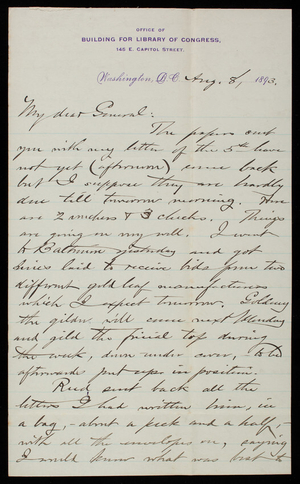 OFFICE OF
BUILDING FOR LIBRARY OF CONGRESS,
145 E. CAPITOL STREET.
Washington, D.C. Aug. 8, 1893.
My dear General:
The papers sent
you with my letter of the 5th have
not yet (afternoon) come back
but I suppose they are hardly
due till tomorrow morning.
are 2 vouchers & 3 checks. Things
are going on very well. I went
to Baltimore yesterday and got
lines laid to receive bids from two
different gold leaf manufacturers
which I expect tomorrow.
the gilder will come next Monday
and gild the finial top during
the week, down under cover, to be
afterwards put up in position.
sent back all the
letters I had written him, in
a bag, - about a peck and a half, -
with all the envelopes on, saying
I would know what was best to